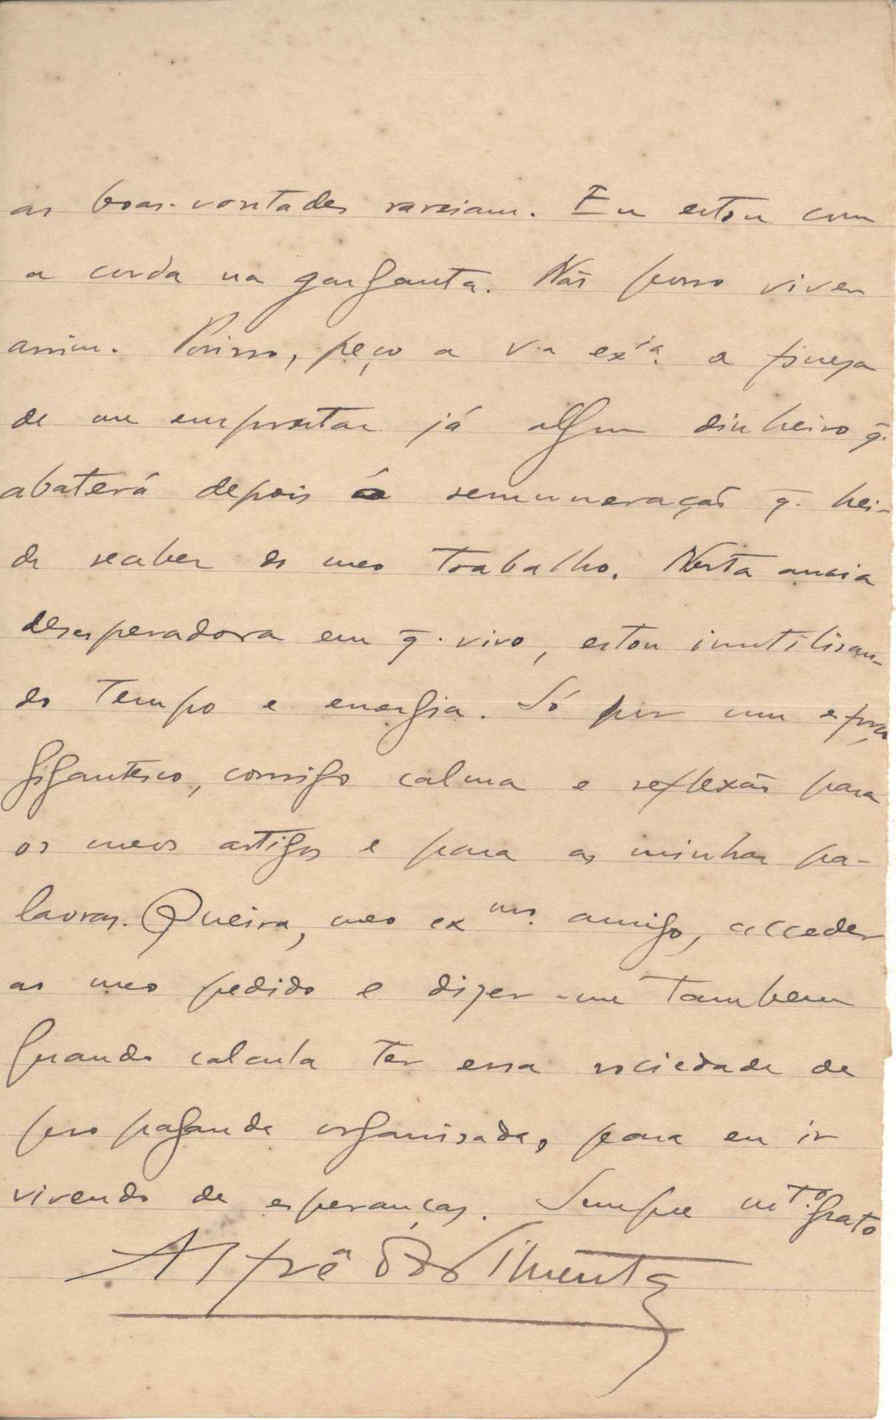 as boas-vontades rareiam. Eu estou com
a corda na garganta. Não posso viver
assim. Porisso, peço a v.a ex.ia a fineza
de me emprestar já algum dinheiro q.
abaterá depois á remuneração q. hei-
de receber do meo trabalho. Nesta ancia
desesperadora em q. vivo, estou inutilisan-
do tempo e energia. Só por um esforço
gigantesco, consigo calma e reflexão para
os meos artigos e para as minhas pa-
lavras. Queira, meo ex.mo amigo, acceder
ao meo pedido e dizer-me tambem
quando calcula ter essa sociedade de
propaganda organisada, para eu ir
vivendo de esperanças. Sempre m.to grato
Alfrêdo Pimenta